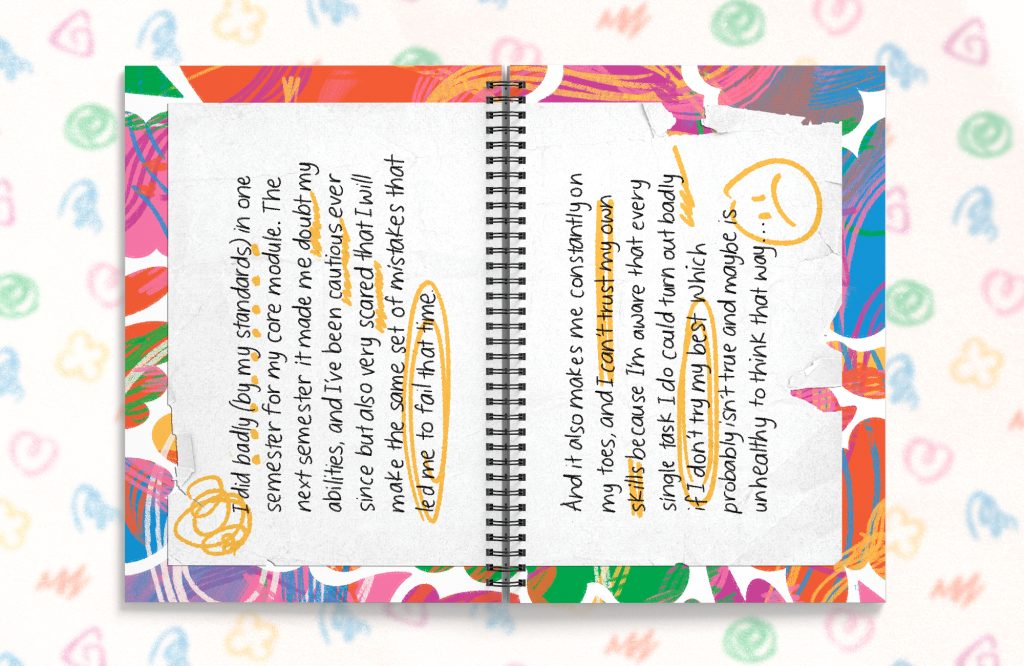 I did badly (by my standards) in one
semester for my core module. The
next semester it made me doubt my
abilities, and I've been cautious ever
since but also very scared that I will
make the same set of mistakes that
led me to fail that time.
And it also makes me constantly on
my toes, and I can't trust my own
skills because I'm aware that every
single task I do could turn out badly
if I don't try my best which
probably isn't true and maybe is
unhealthy to think that way....